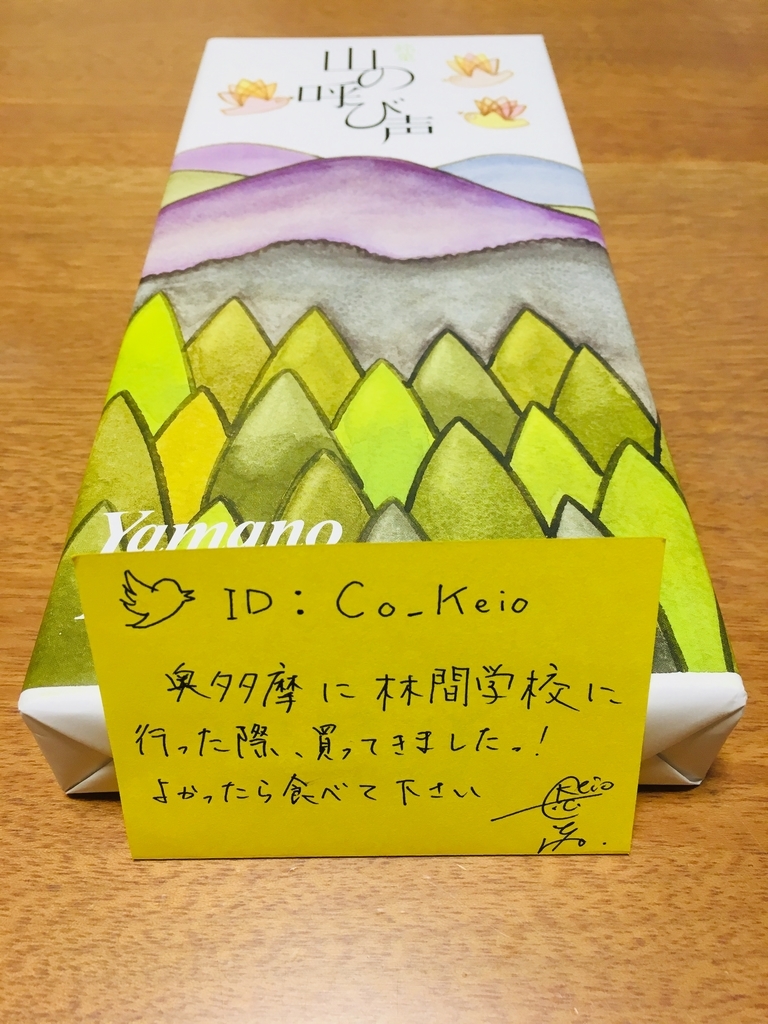 山の
呼び声
Yamano
ID: Co_Keio
奥多摩に林間学校に
行った際、買ってきましたっ!
よかったら食べて下さい
Keio